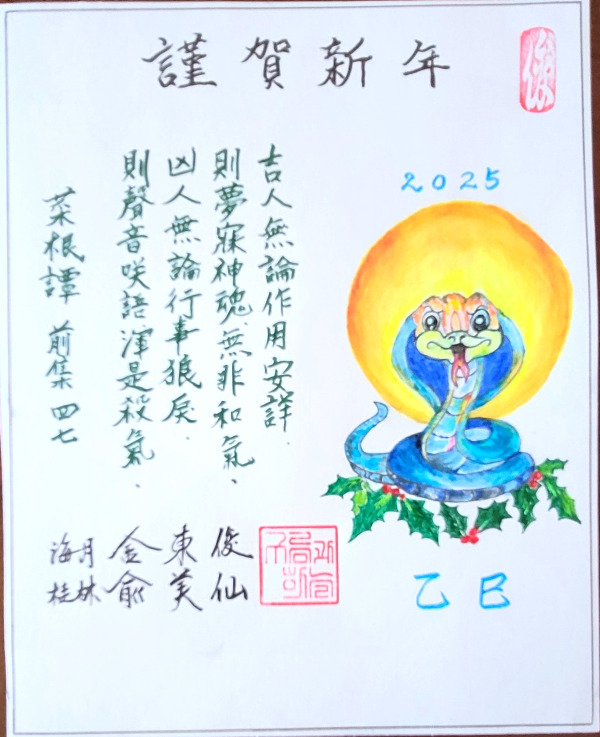 謹賀新年
2025
吉人無論作用安詳、
則夢寐神魂、無非和氣、
凶人無論行事狼戾、
則聲音咲語渾是殺氣、
菜根譚 前集 四七
海月 金東俊
桂林 兪美仙
乙巳